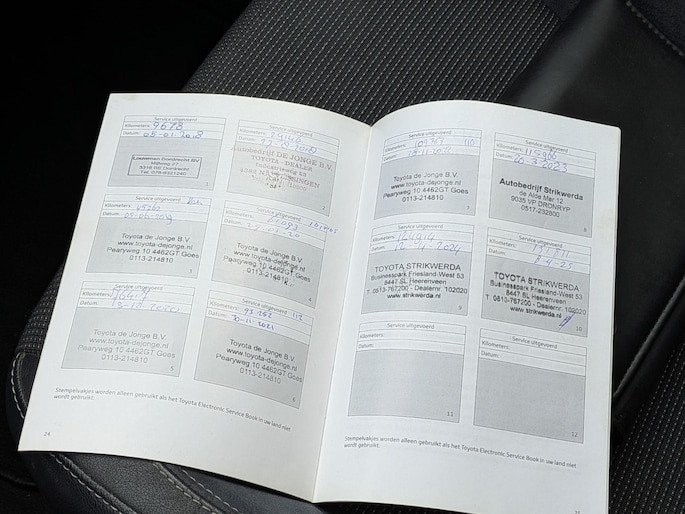 Service uitgevoerd
Kilometers: 9678
Datum: 05-01-2018
Louwman Dordrecht BV
Mijlweg 37
3316 BE Dordrecht
Tel. 078-6321340
1
Service uitgevoerd
Kilometers:
Datum:
Autobedrijf DE JONGE B.V.
TOYOTA - DEALER
2
Service uitgevoerd
Kilometers:
Datum:
Toyota de Jonge B.V.
www.toyota-dejonge.nl
Pearyweg 10 4462GT Goes
0113-214810
3
Service uitgevoerd
Kilometers:
Datum:
Toyota de Jonge B.V.
www.toyota-dejonge.nl
Pearyweg 10 4462GT Goes
0113-214810
4
Service uitgevoerd
Kilometers:
Datum:
Toyota de Jonge B.V.
www.toyota-dejonge.nl
Pearyweg 10 4462GT Goes
0113-214810
5
Service uitgevoerd
Kilometers: 93 252
Datum: 30-11-2021
Toyota de Jonge B.V.
www.toyota-dejonge.nl
Pearyweg 10 4462GT Goes
0113-214810
Stempelvakjes worden alleen gebruikt als het Toyota Electronic Service Book in uw land niet
wordt gebruikt.
24
Service uitgevoerd
Kilometers:
Datum:
Toyota de Jonge B.V.
www.toyota-dejonge.nl
Pearyweg 10 4462GT Goes
0113-214810
7
Service uitgevoerd
Kilometers: 115966
Datum: 20-3-2023
Autobedrijf Strikwerda
de Alde Mar 12
9035 VP DRONRYP
0517-232800
8
Service uitgevoerd
Kilometers: 124914
Datum: 12-4-2024
TOYOTA STRIKWERDA
Businesspark Friesland-West 53
8447 SL Heerenveen
T. 0513-767200 - Dealernr. 102020
www.strikwerda.nl
9
Service uitgevoerd
Kilometers:
Datum: 8-4-25
TOYOTA STRIKWERDA
Businesspark Friesland-West 53
8447 SL Heerenveen
T. 0513-767200 - Dealernr. 102020
www.strikwerda.nl
10
Service uitgevoerd
Kilometers:
Datum:
11
Service uitgevoerd
Kilometers:
Datum:
12
Stempelvakjes worden alleen gebruikt als het Toyota Electronic Service Book in uw land niet
wordt gebruikt.